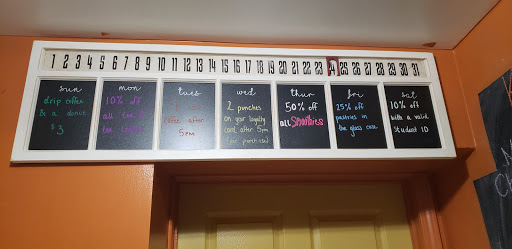 1 2 3 4 5 6 7 8 9 10 11 12 13 14 15 16 17 18 19 20 21 22 23 24 25 26 27 28 29 30 31
sun
drip coffee
& a donut
$3
mon
10% off
all tea &
tues
coffee after
5pm
wed
2 punches
on your loyalty
card after 5pm
thur
50% off
all Smoothies
fri
25% off
pastries in
the glass case
sat
10% off
with a valid
Student ID